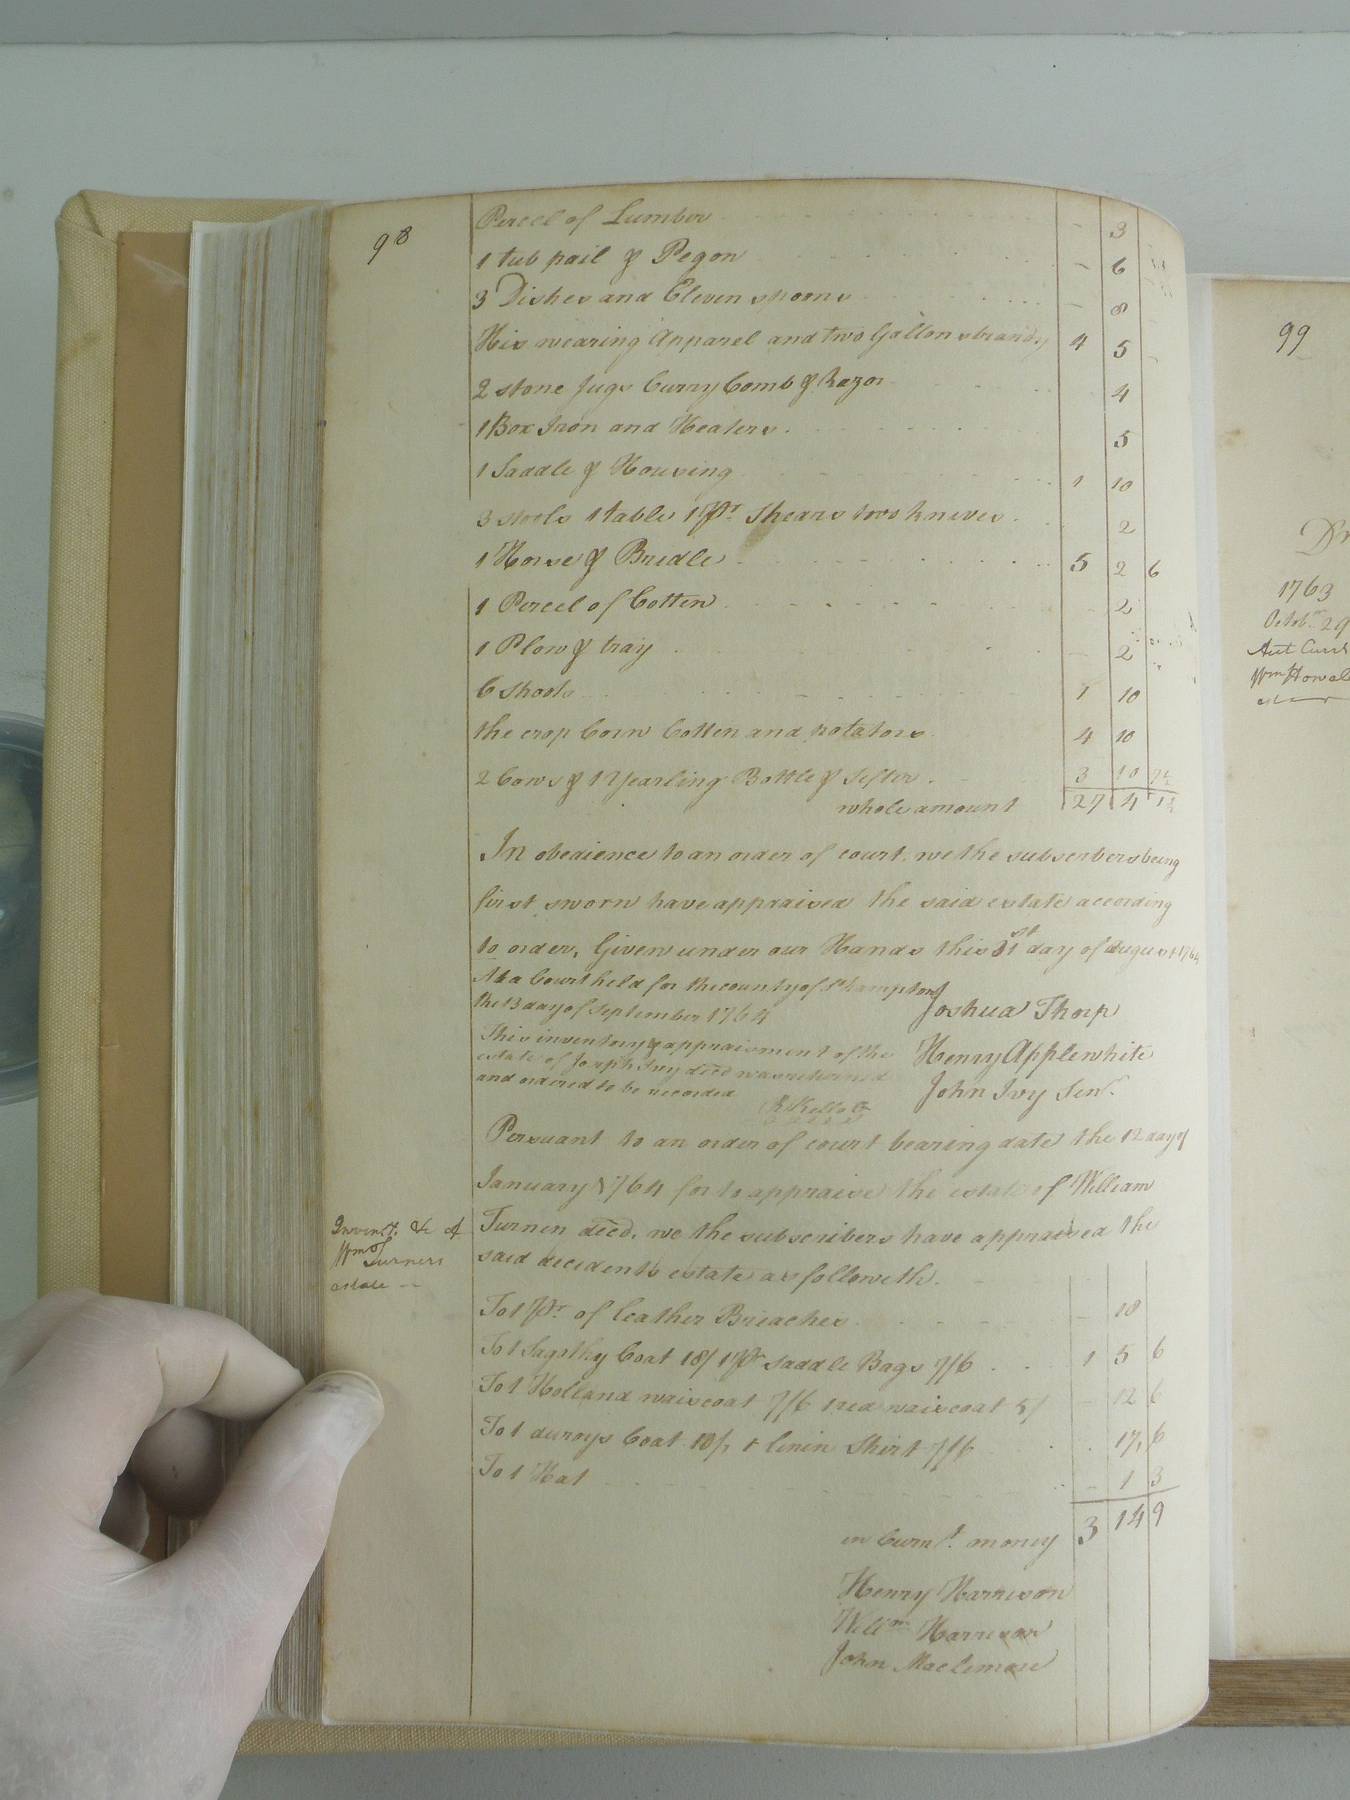 98
Percel of Lumber - 3
1 tub pail & Pegon - 6
3 Dishes and Eleven spoons - 8
His wearing Apparel and two Gallons brandy 4 5
2 stone Jugs Curry Comb & Razor 4
1 Box Iron and Heaters 5
1 Saddle & Housing 1 10
3 stools 1 table 1 pr. Shears two knives 2
1 Horse & Bridle 5 2 6
1 Percel of Cotten 2
1 Plow & tray 2
6 Shoots 1 10
the crop Corn Cotten and potatoes 4 10
2 Cows & 1 Yearling Bottle & Sifter 3 10
whole amount 27 4
In obedience to an order of court, we the subscribers being
first sworn have appraised the said estate according
to order, Given under our Hands this 31st day of August 1764
At a Court held for the county of Shampton
the 13 day of September 1764
This inventory & appraisment of the
estate of Joseph Ivy decd was returned
and ordered to be recorded
Joshua Thorp
Henry Applewhite
John Ivy Senr.
Persuant to an order of court bearing date the 12 day of
January 1764 for to appraise the estate of William
Turnen decd. we the subscribers have appraised the
said decedents estate as followeth.
Invent. &c of
Wm Turners
estate
To 1 pr. of leather Breaches - 18
To 1 Sagathy Coat 18/ 1 pr saddle Bags 7/6 1 5 6
To 1 Holland waiscoat 7/6 1 red waiscoat 5/ - 12 6
To 1 duroys Coat 10/, 1 linin Shirt 7/6 17, 6
To 1 Hat - 1 3
in Curnt. money 3 14 9
Henry Harrison
Willm Harrison
John Maclemore
99
Dr
1763
Octobr 29
Act Curt
Wm Howel